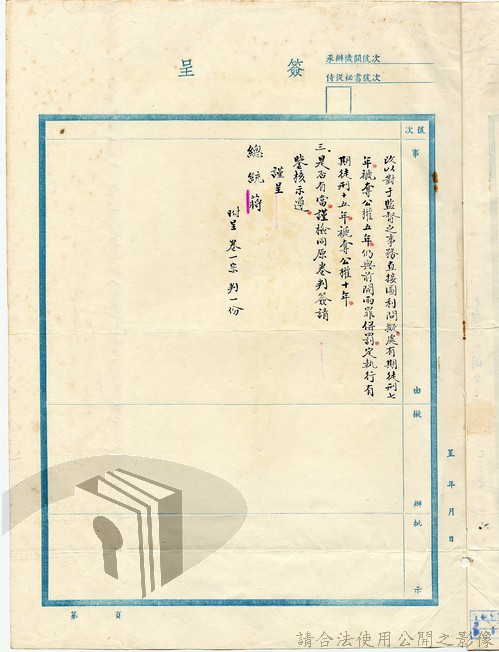 簽呈
承辦機關號次
侍從祕書號次
號次
事
由
擬
辦
批
示
次以對于監督之事務直接圖利問擬處有期徒刑七
年褫奪公權五年仍與前開兩罪併罰定執行有
期徒刑十五年褫奪公權十年
三、是否有當謹檢同原卷判簽請
鑒核示遵
謹呈
總統蔣
附呈卷一宗判一份
呈年月日
第頁
請合法使用公開之影像